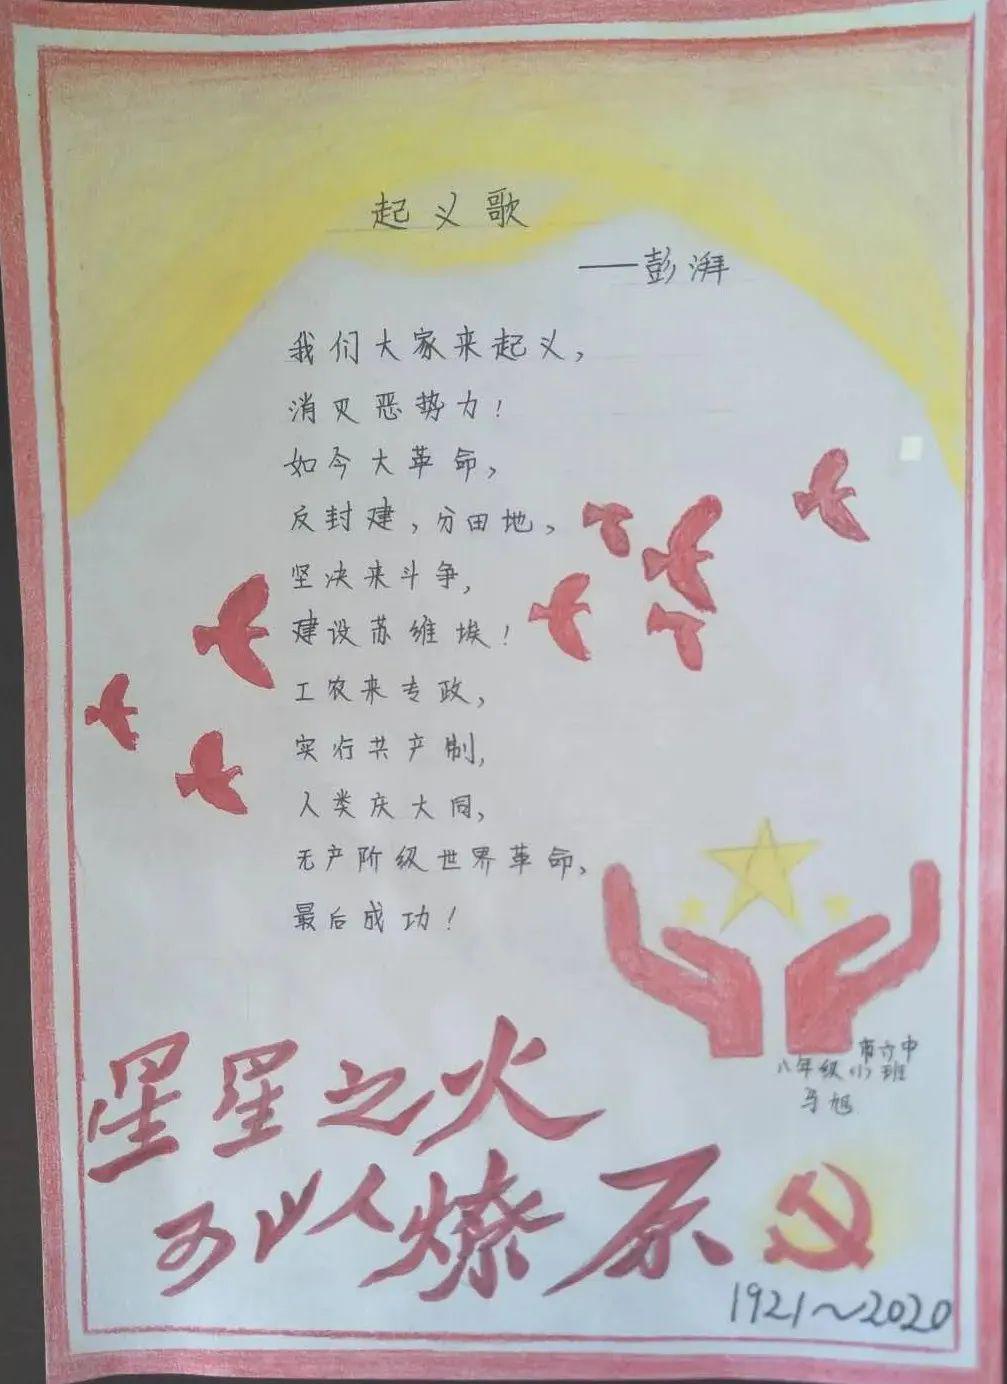 起义歌
——彭湃
我们大家来起义，
消灭恶势力！
如今大革命，
反封建，分田地，
坚决来斗争，
建设苏维埃！
工农来专政，
实行共产制，
人类庆大同，
无产阶级世界革命，
最后成功！
市六中
八年级(1)班
马旭
星星之火
可以燎原
1921~2020